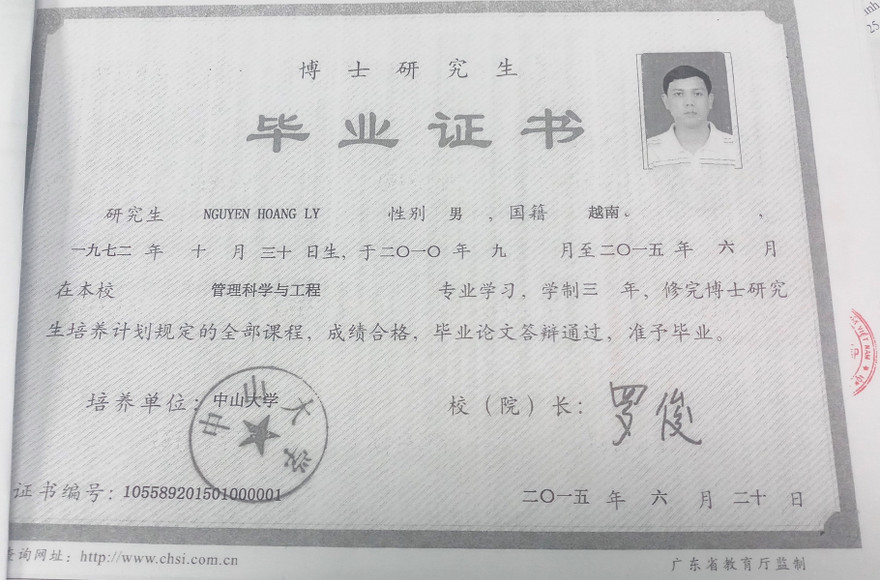 博士研究生
毕业证书
研究生 NGUYEN HOANG LY 性别 男 ，国籍 越南。 ，
一九七二 年 十 月 三十 日生，于二〇一〇 年 九 月至二〇一五 年 六 月
在本校 管理科学与工程 专业学习，学制三 年，修完博士研究
生培养计划规定的全部课程，成绩合格，毕业论文答辩通过，准予毕业。
培养单位：中山大学 校（院）长：罗俊
中山大学
证书编号：105589201501000001 二〇一五 年 六 月 二十 日
查询网址：http://www.chsi.com.cn 广东省教育厅监制
VIỆT NAM
25